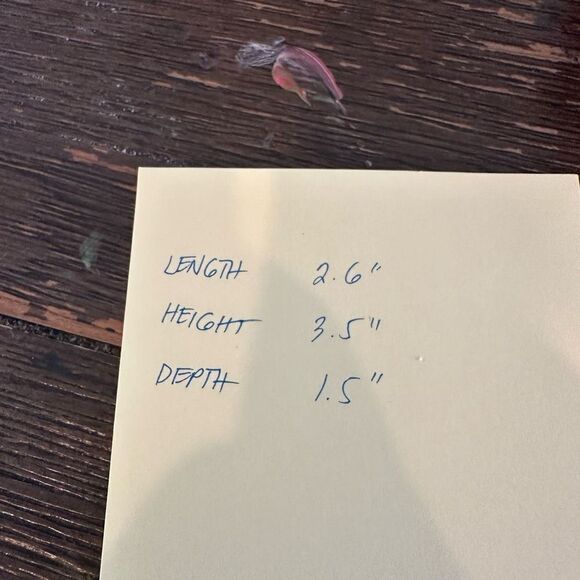 LENGTH 2.6"
HEIGHT 3.5"
DEPTH 1.5"